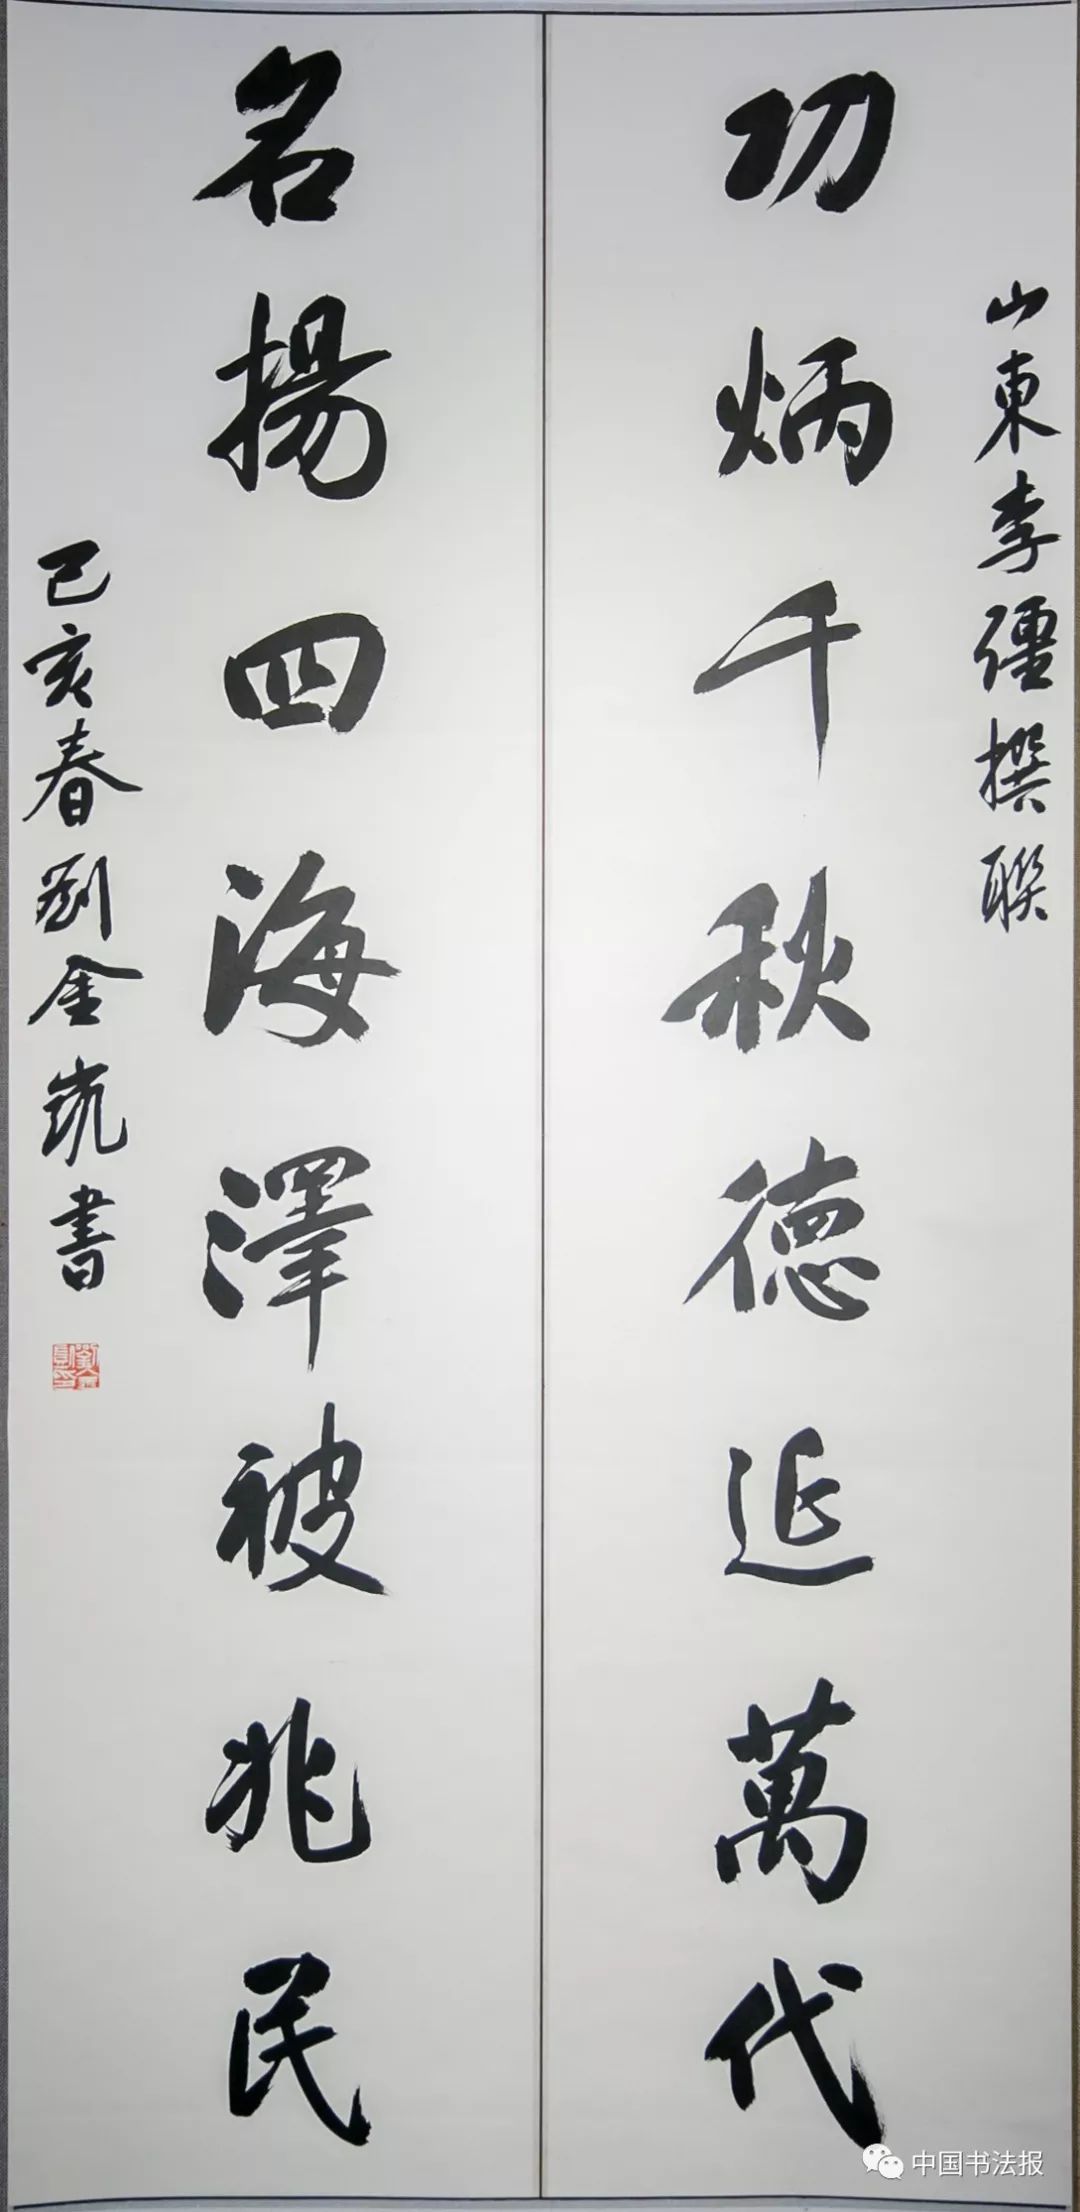 山東李彊撰聯
功炳千秋德延萬代
名揚四海澤被兆民
己亥春劉金凱書
中国书法报